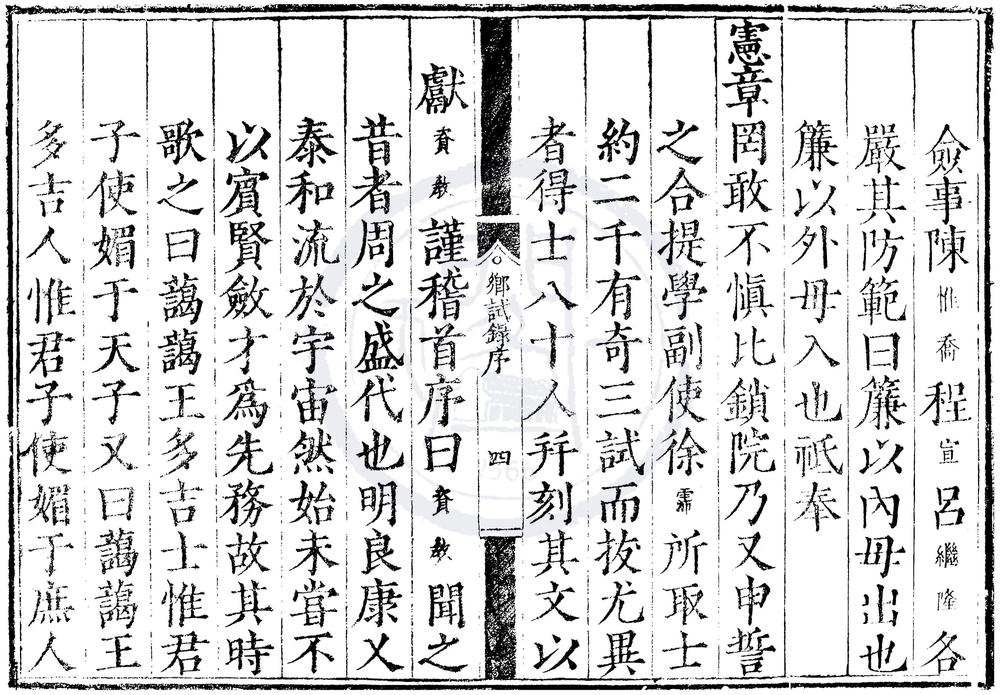 僉事陳惟喬程宣呂繼隆各
嚴其防範曰簾以內毋出也
簾以外毋入也祗奉
憲章罔敢不慎比鎖院乃又申誓
之合提學副使徐霈所取士
約二千有奇三試而拔尤異
者得士八十人幷刻其文以
鄉試錄序 四
獻賚敎謹稽首序曰賚敎聞之
昔者周之盛代也明良康乂
泰和流於宇宙然始未嘗不
以賓賢斂才爲先務故其時
歌之曰藹藹王多吉士惟君
子使媚于天子又曰藹藹王
多吉人惟君子使媚于庶人